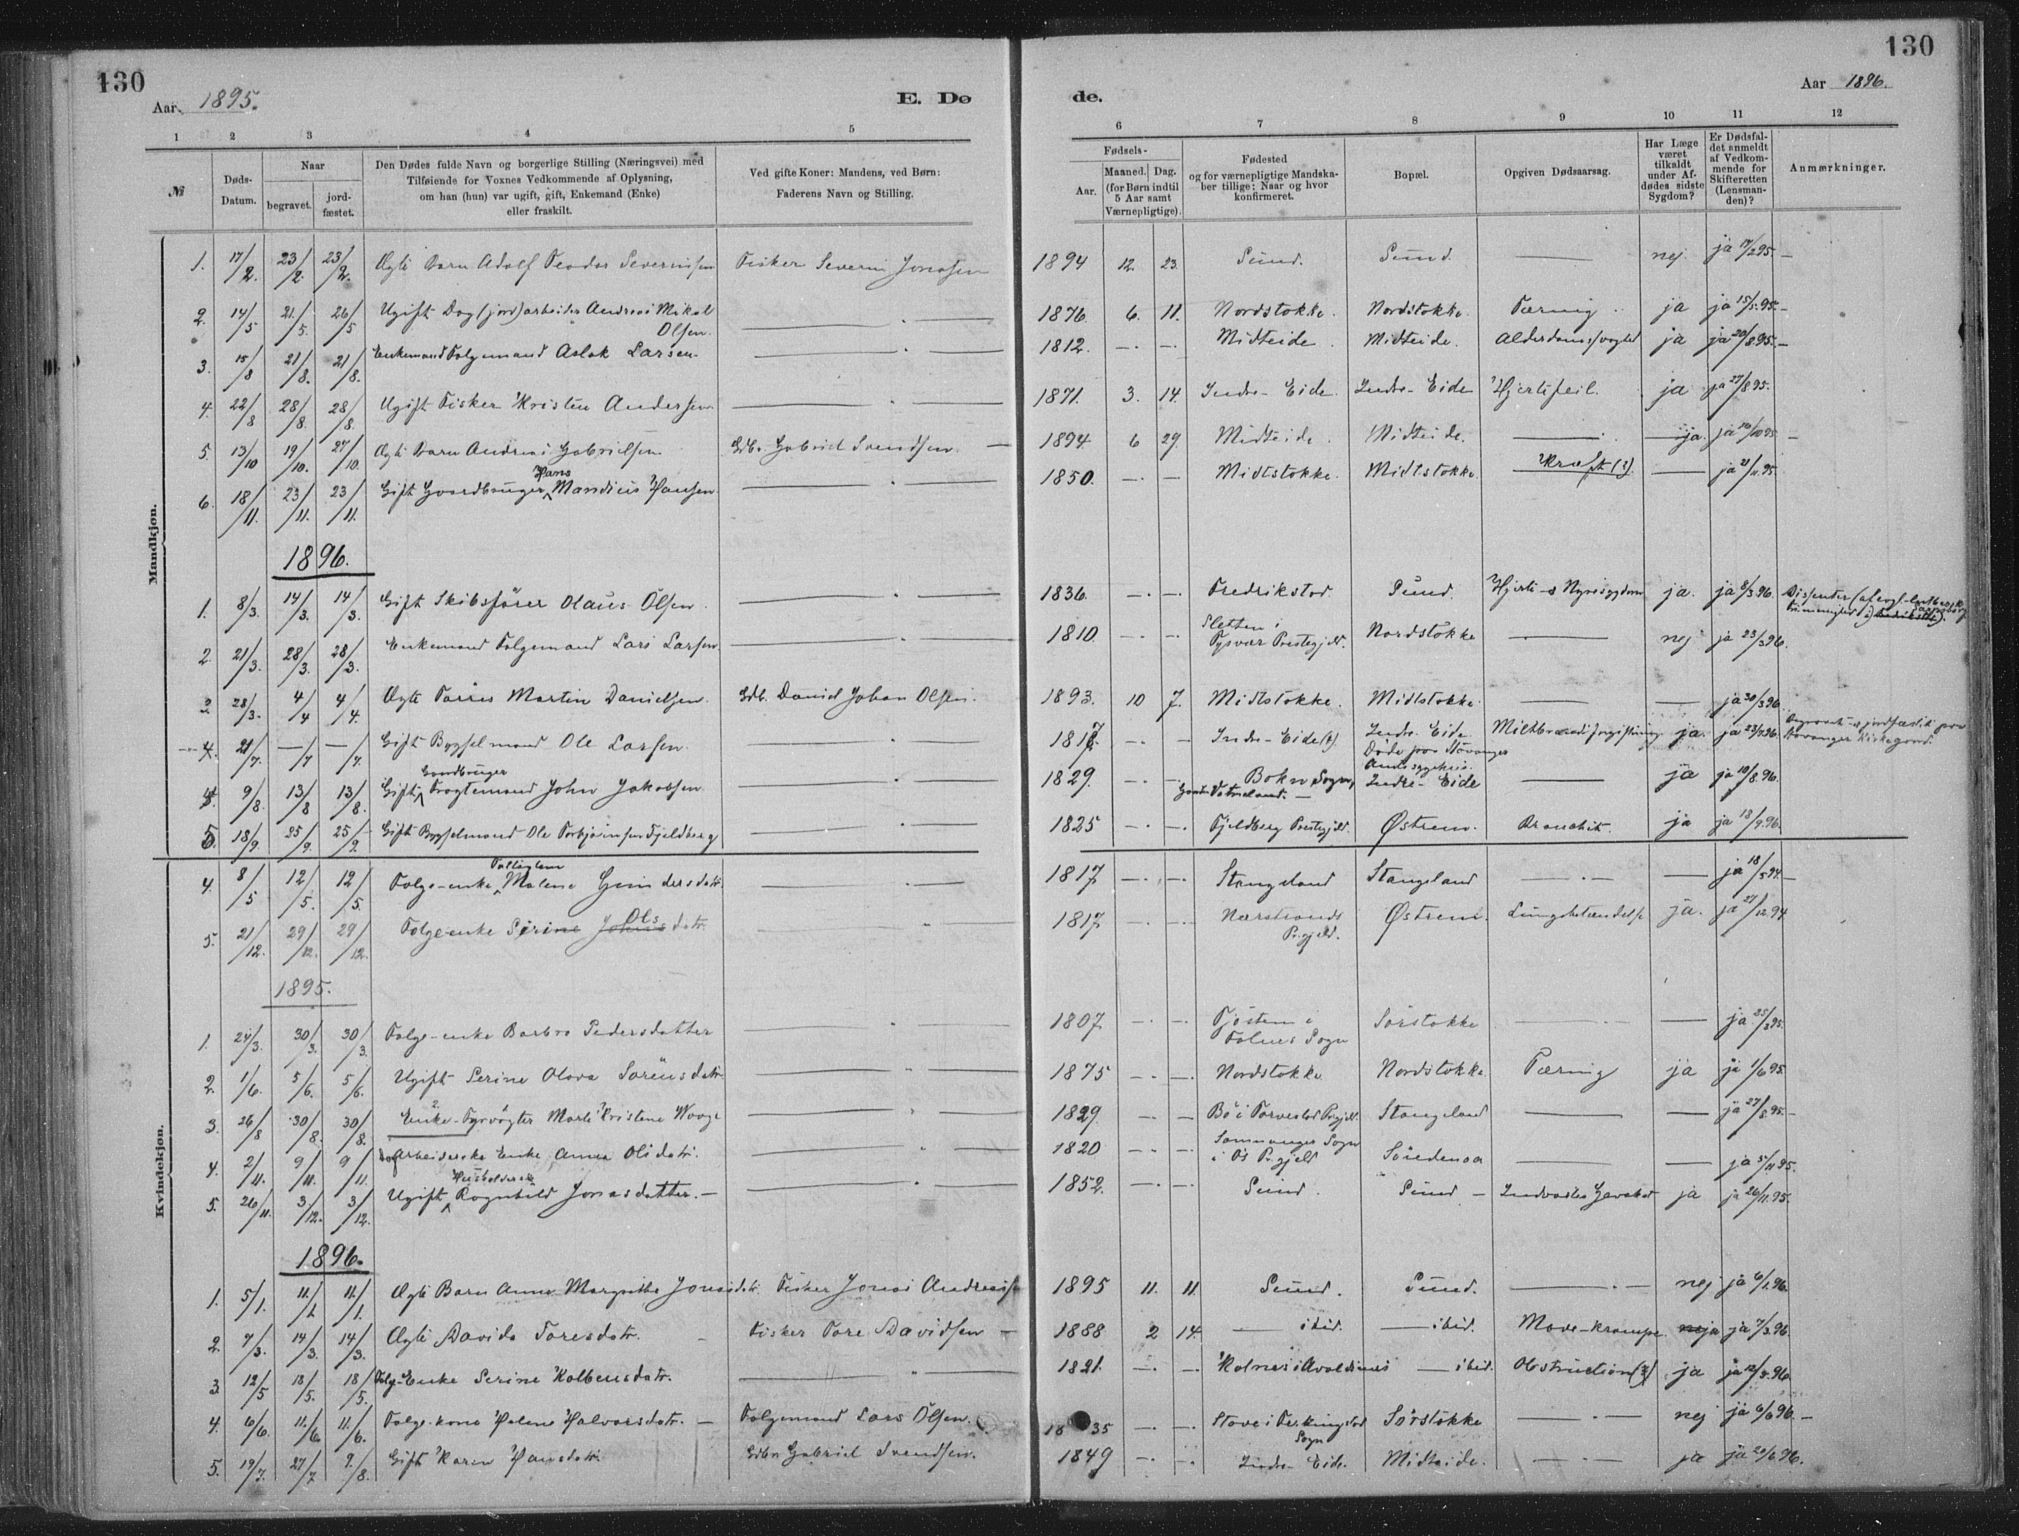 130
130
Aar 1895.
E. Dø
de.
Aar 1896.
1 2 3 4 5 6 7 8 9 10 11 12
№
Døds-Datum.
Naar
begravet.
jord-fæstet.
Den Dødes fulde Navn og borgerlige Stilling (Næringsvei) med
Tilføiende for Voxnes Vedkommende af Oplysning,
om han (hun) var ugift, gift, Enkemand (Enke)
eller fraskilt.
Ved gifte Koner: Mandens, ved Børn:
Faderens Navn og Stilling.
Fødsels-
Aar.
Maaned. Dag.
(for Børn indtil
5 Aar samt
Værnepligtige).
Fødested
og for værnepligtige Mandska-
ber tillige: Naar og hvor
konfirmeret.
Bopæl.
Opgiven Dødsaarsag.
Har Læge
været
tilkaldt
under Af-
dødes sidste
Sygdom?
Er Dødsfal-
det anmeldt
af Vedkom-
mende for
Skifteretten
(Lensman-
den)?
Anmærkninger.
Mandkjøn.
1. 17/2. 23/2. 23/2. Ægte Barn Adolf Teodor Severinsen Fisker Severin Jonassen 1894 12. 23. Sund. Sund. — nej ja 17/2 95. —
2. 14/5 21./5. 26/5 Ugift Dag(jord)arbeider Andreas Mikal Olsen. — " — 1876. 6. 11. Nordstokke. Nordstokke. Tæring ja ja 15/5. 95. —
3. 15/8 21/8. 21/8. Enkemand Folgemand Aslak Larsen. — " — 1812. — — Midteide. Midteide. ja ja 20/8 95. —
4. 22/8 28/8. 28/8. Ugift Fisker Kristen Andersen. — " — 1871. 3. 14. Indre-Eide. Indre-Eide Hjertefeil. ja ja 27/8 95.
5. 13/10 19/10. 27/10. Ægte Barn Andreas Gabrielsen Gdb. Gabriel Svendsen. — 1894. 6 29. Midteide. Midteide. — ja. ja 95 —
6. 18/11. 23/11. 23/11. Gift Gaardbruger Hans Mandius Hansen — " — 1850. — — Midtstokke. Midtstokke. Kræft (?). — ja 21/11. 95
1896.
1. 8/3. 14/3. 14/3. Gift Skibsfører Olaus Olsen. — " — 1836. — — Fredrikstad. Sund. Hjerte- & Nyresygdom ja. ja 8/3 96. Dissenter
2. 21/3. 28/3. 28/3. Enkemand Folgemand Lars Larsen. — " — 1810. — — Sletten i Tysvær Prestegjeld. Nordstokke — nej ja 23/3 96.
3. 28/3. 4/4 4/4. Ægte Martin Danielsen. Gdb. Daniel Johan Olsen. 1893. 10 7. Midtstokke. Midtstokke. — — ja 30/3 96.
4. 21/7. —/7 —/7. Gift Bygselmand Ole Larsen. — " — — — Indre-Eide(?) Indre-Eide Døde paa Stavanger Amtssygehus. Miltbrandforgiftning. ja. ja 23/7. 96. Begravet & jordfæstet paa Stavanger Kirkegaard.
4. 9/8. 13/8 13/8. Gift Gaardbruger John Jakobsen — " — 1829. — — Bokn Sogn, Indre-Eide — ja ja 10/8. 96.
5. 18/9. 25/9. 25/9. Gift Bygselmand Ole Torbjørnsen Fjeldberg — " — 1825 — — Fjeldberg Prestegjeld. Østrem. Bronchit. ja ja 18/9. 96.
Kvindekjøn.
4. 8/5 12/5. 12/5. Folge-enke Malene Gundersdatr. — " — 1817 — — Stangeland Stangeland — — ja 18/5 94. —
5. 21/12. 29/12. 29/12. Folgeenke Serine Olsdatr. 1817 — — Nærstrands Prgjeld. Østrem. Lungebetændelse ja. ja 27/12. 94
1895.
1. 24/3. 30/3. 30/3. Folge-enke Barbro Pedersdatter — " — 1807. — — i Sogn Sørstokke — — ja 25/3 95.
2. 1/6. 5/6. 5/6. Ugift Serine Olava Sørensdatr. — " — 1875 — — Nordstokke. Nordstokke. Tæring ja ja 1/6 95.
3. 26/8 30/8. 30/8. Enke Fyrvogter Marte Kristene Waage — " — 1829. — — Bø i Torvestad Prgjeld. Stangeland — — ja 27/8 95. —
4. 2/11. 9/11. 9/11. Arbeiderske Enke Anna Olsdatr. — " — 1820 — — Samnanger Sogn i Os Prgjeld — — ja 5/11 95.
5. 26/11. 3/12. 3/12. Ugift Husholderske Ragnhild Jonasdatter. — " — 1852. — — Sund. Sund — ja ja 26/11. 95.
1896.
1. 5/1. 11./1. 11./1. Ægte Barn Anna Margrethe Jonasdatr. Fisker Jonas Andreassen 1895 11. 11 Sund. Sund. — nej ja 6/1. 96.
2. 7/3. 14/3. 14/3. Ægte Davida Toresdatr. — Fisker Tore Davidsen — 1888 2 14. — ibid. — ibid. Mave-krampe. ja ja 7/3. 96.
3. 12/5 18/5. 18/5. Folge-Enke Serine Kolbensdatr. — " — 1821. — — Kolnes i Avaldsnes — ibid. Obstruction(?) ja ja 12/5. 96.
4. 6/6. 11./6. 11./6. Folge-kone Helene Halvorsdatr. — Folgemand Lars Olsen. 1835 — — Stave i Ferkingstad Sogn Sørstokke — nej ja 6/6 96. —
5. 19/7. 27/7 9./8. Gift Karen Hansdatr. Gdbr. Gabriel Svendsen. 1849 — — Indre-Eide. Midteide. — ja ja 96.